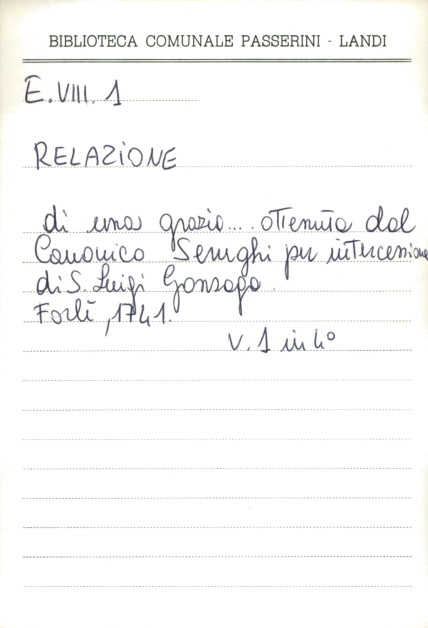 BIBLIOTECA COMUNALE PASSERINI - LANDI
E.VIII. 1
RELAZIONE
di una grazia... ottenuta dal
Canonico Serughi per intercessione
di S. Luigi Gonzaga.
Forlì, 1741.
V. 1 in 4°